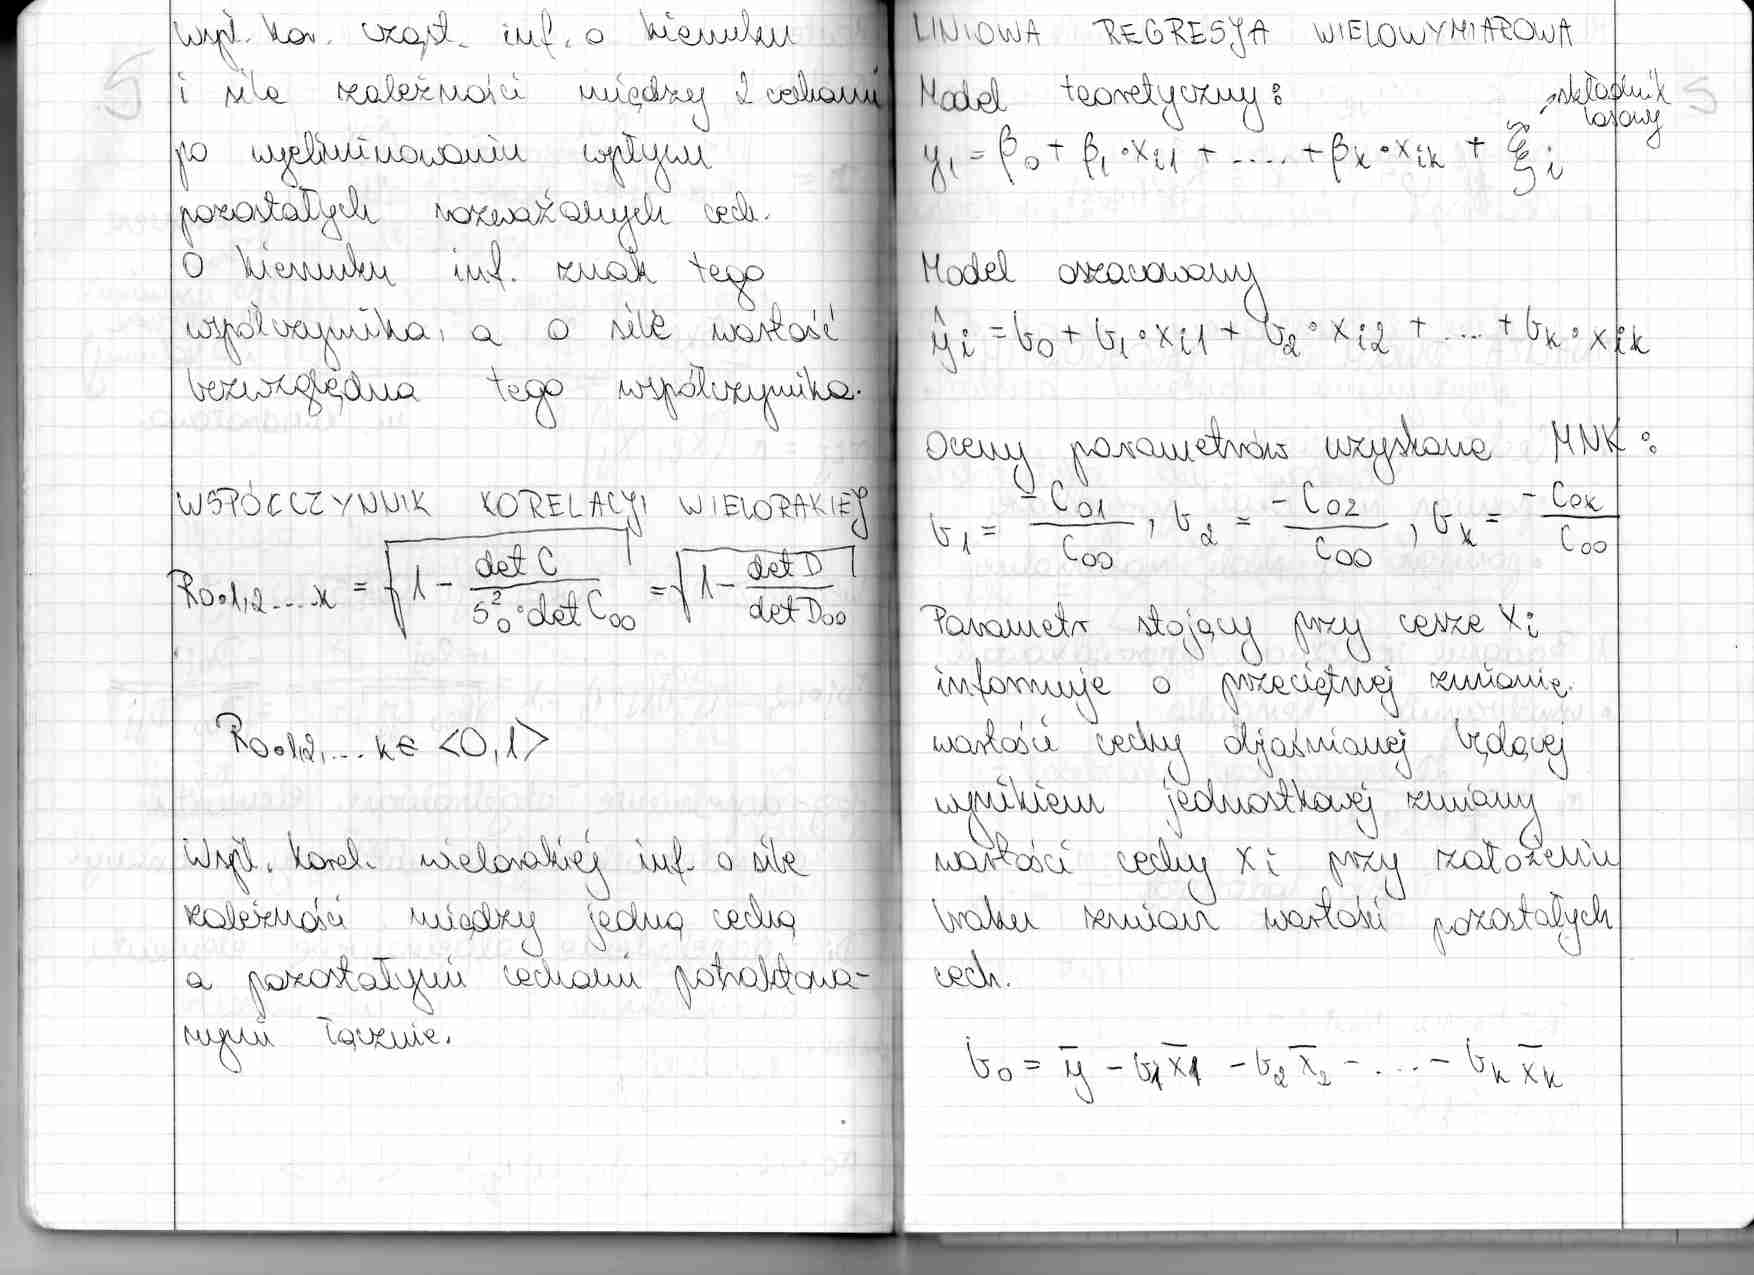 Wsp. kor. cząst. inf. o kierunku
i sile zależności między 2 cechami
po wyeliminowaniu wpływu
pozostałych rozważanych cech.
O kierunku inf. znak tego
współczynnika, a o sile wartość
bezwzględna tego współczynnika.
WSPÓŁCZYNNIK KORELACJI WIELORAKIEJ
R0•1,2....k = √(1 - det C / (S²0 • det C00)) = √(1 - det D / det D00)
R0•1,2,...k ∈ <0,1>
Wsp. korel. wielorakiej inf. o sile
zależności między jedną cechą
a pozostałymi cechami potraktowa-
nymi łącznie.
LINIOWA REGRESJA WIELOWYMIAROWA
Model teoretyczny:
składnik
losowy
y1 = β0 + β1 • xi1 + .... + βk • xik + ξi
Model oszacowany
ŷi = b0 + b1 • xi1 + b2 • xi2 + ... + bk • xik
Oceny parametrów uzyskane MNK:
b1 = -C01 / C00, b2 = -C02 / C00, bk = -C0k / C00
Parametr stojący przy cesze xi
informuje o przeciętnej zmianie
wartości cechy objaśnianej będącej
wynikiem jednostkowej zmiany
wartości cechy xi przy założeniu
braku zmian wartości pozostałych
cech.
b0 = y̅ - b1x̅1 - b2x̅2 - ... - bkx̅k